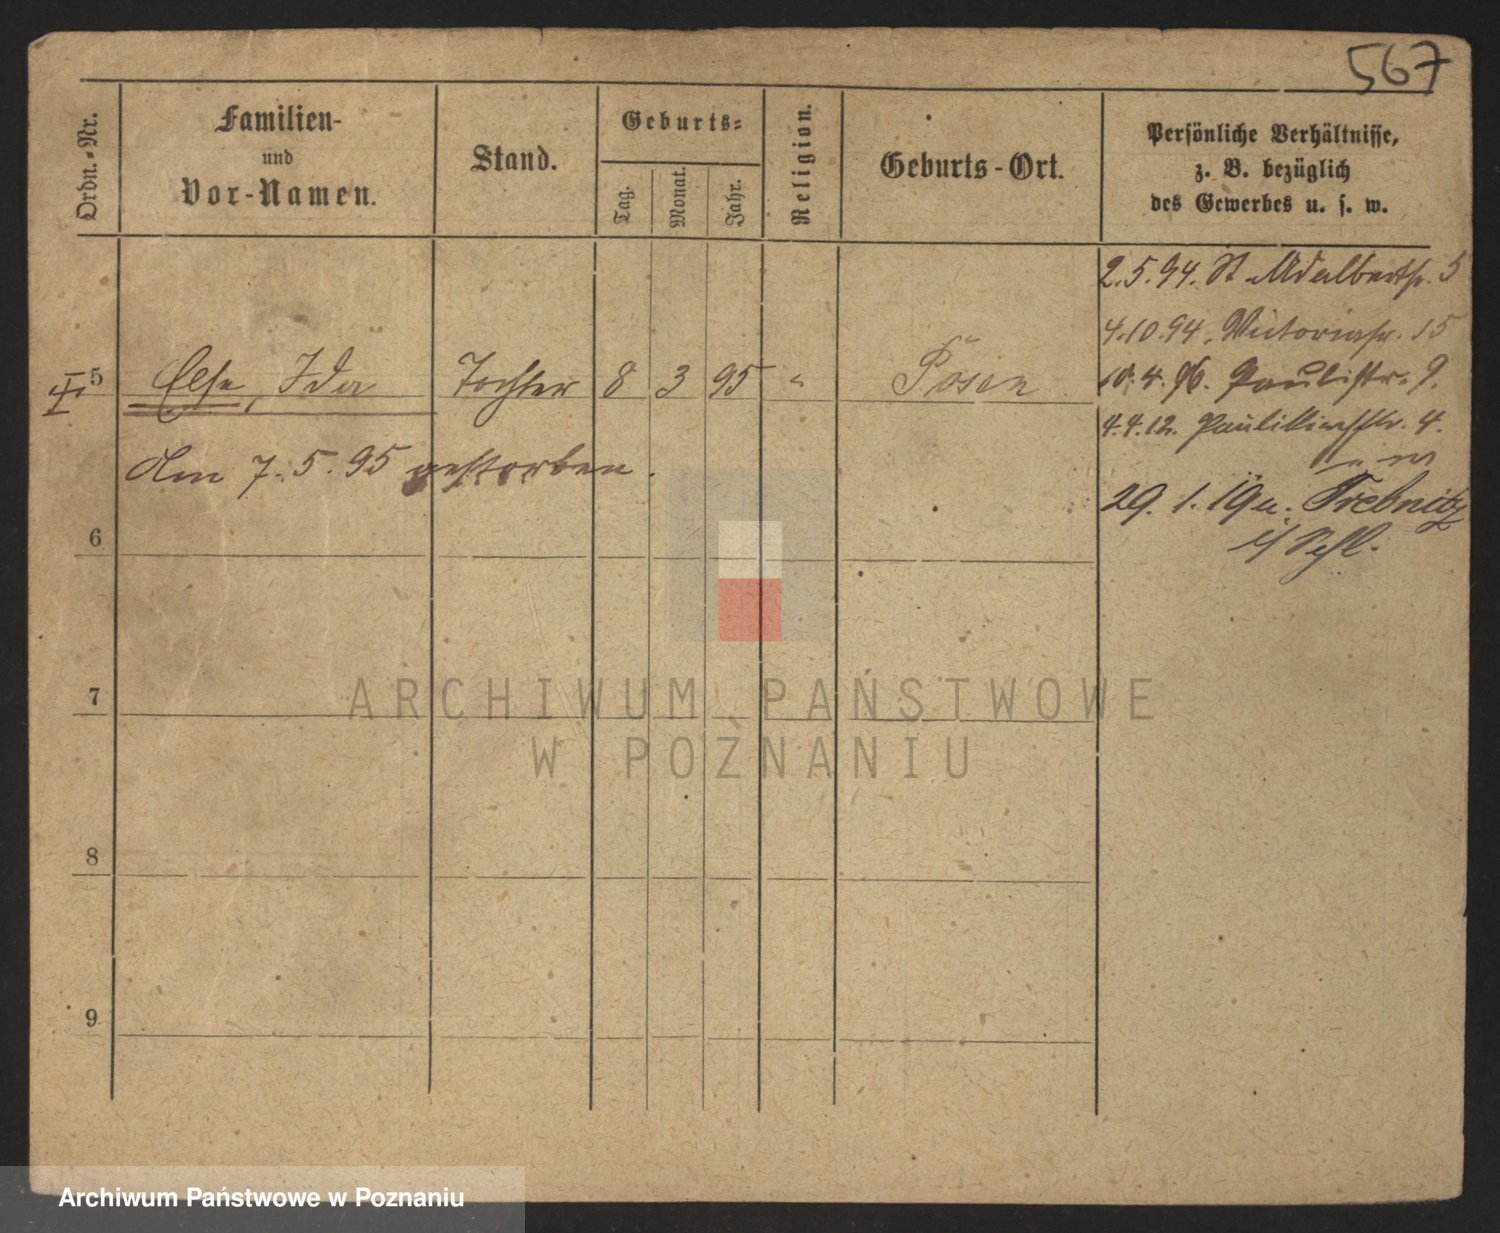 567
Ordn.-Nr.
Familien-
und
Vor-Namen.
Stand.
Geburts-
Tag.
Monat.
Jahr.
Religion.
Geburts-Ort.
Persönliche Verhältnisse,
z. B. bezüglich
des Gewerbes u. s. w.
2.5.94. St Adalbertstr. 5
4.10.94. Victoriastr. 15
10.4.96. Paulistr. 9.
5 Else, Ida Tochter 8 3 95 " Posen
4.4.12. Paulikirchstr. 4.
Am 7.5.95 gestorben.
29.1.19 n. Trebnitz
i/Schl.
6
7
8
9
ARCHIWUM PAŃSTWOWE
W POZNANIU
Archiwum Państwowe w Poznaniu